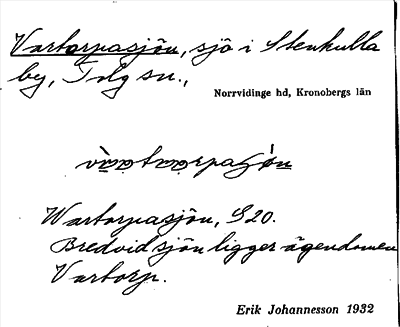 Vartorpasjön, sjö i Stenkulla
by, Tolg sn.,
Norrvidinge hd, Kronobergs län
Wartorpasjön, S 20.
Bredvid sjön ligger ägendomen
Vartorp.
Erik Johannesson 1932